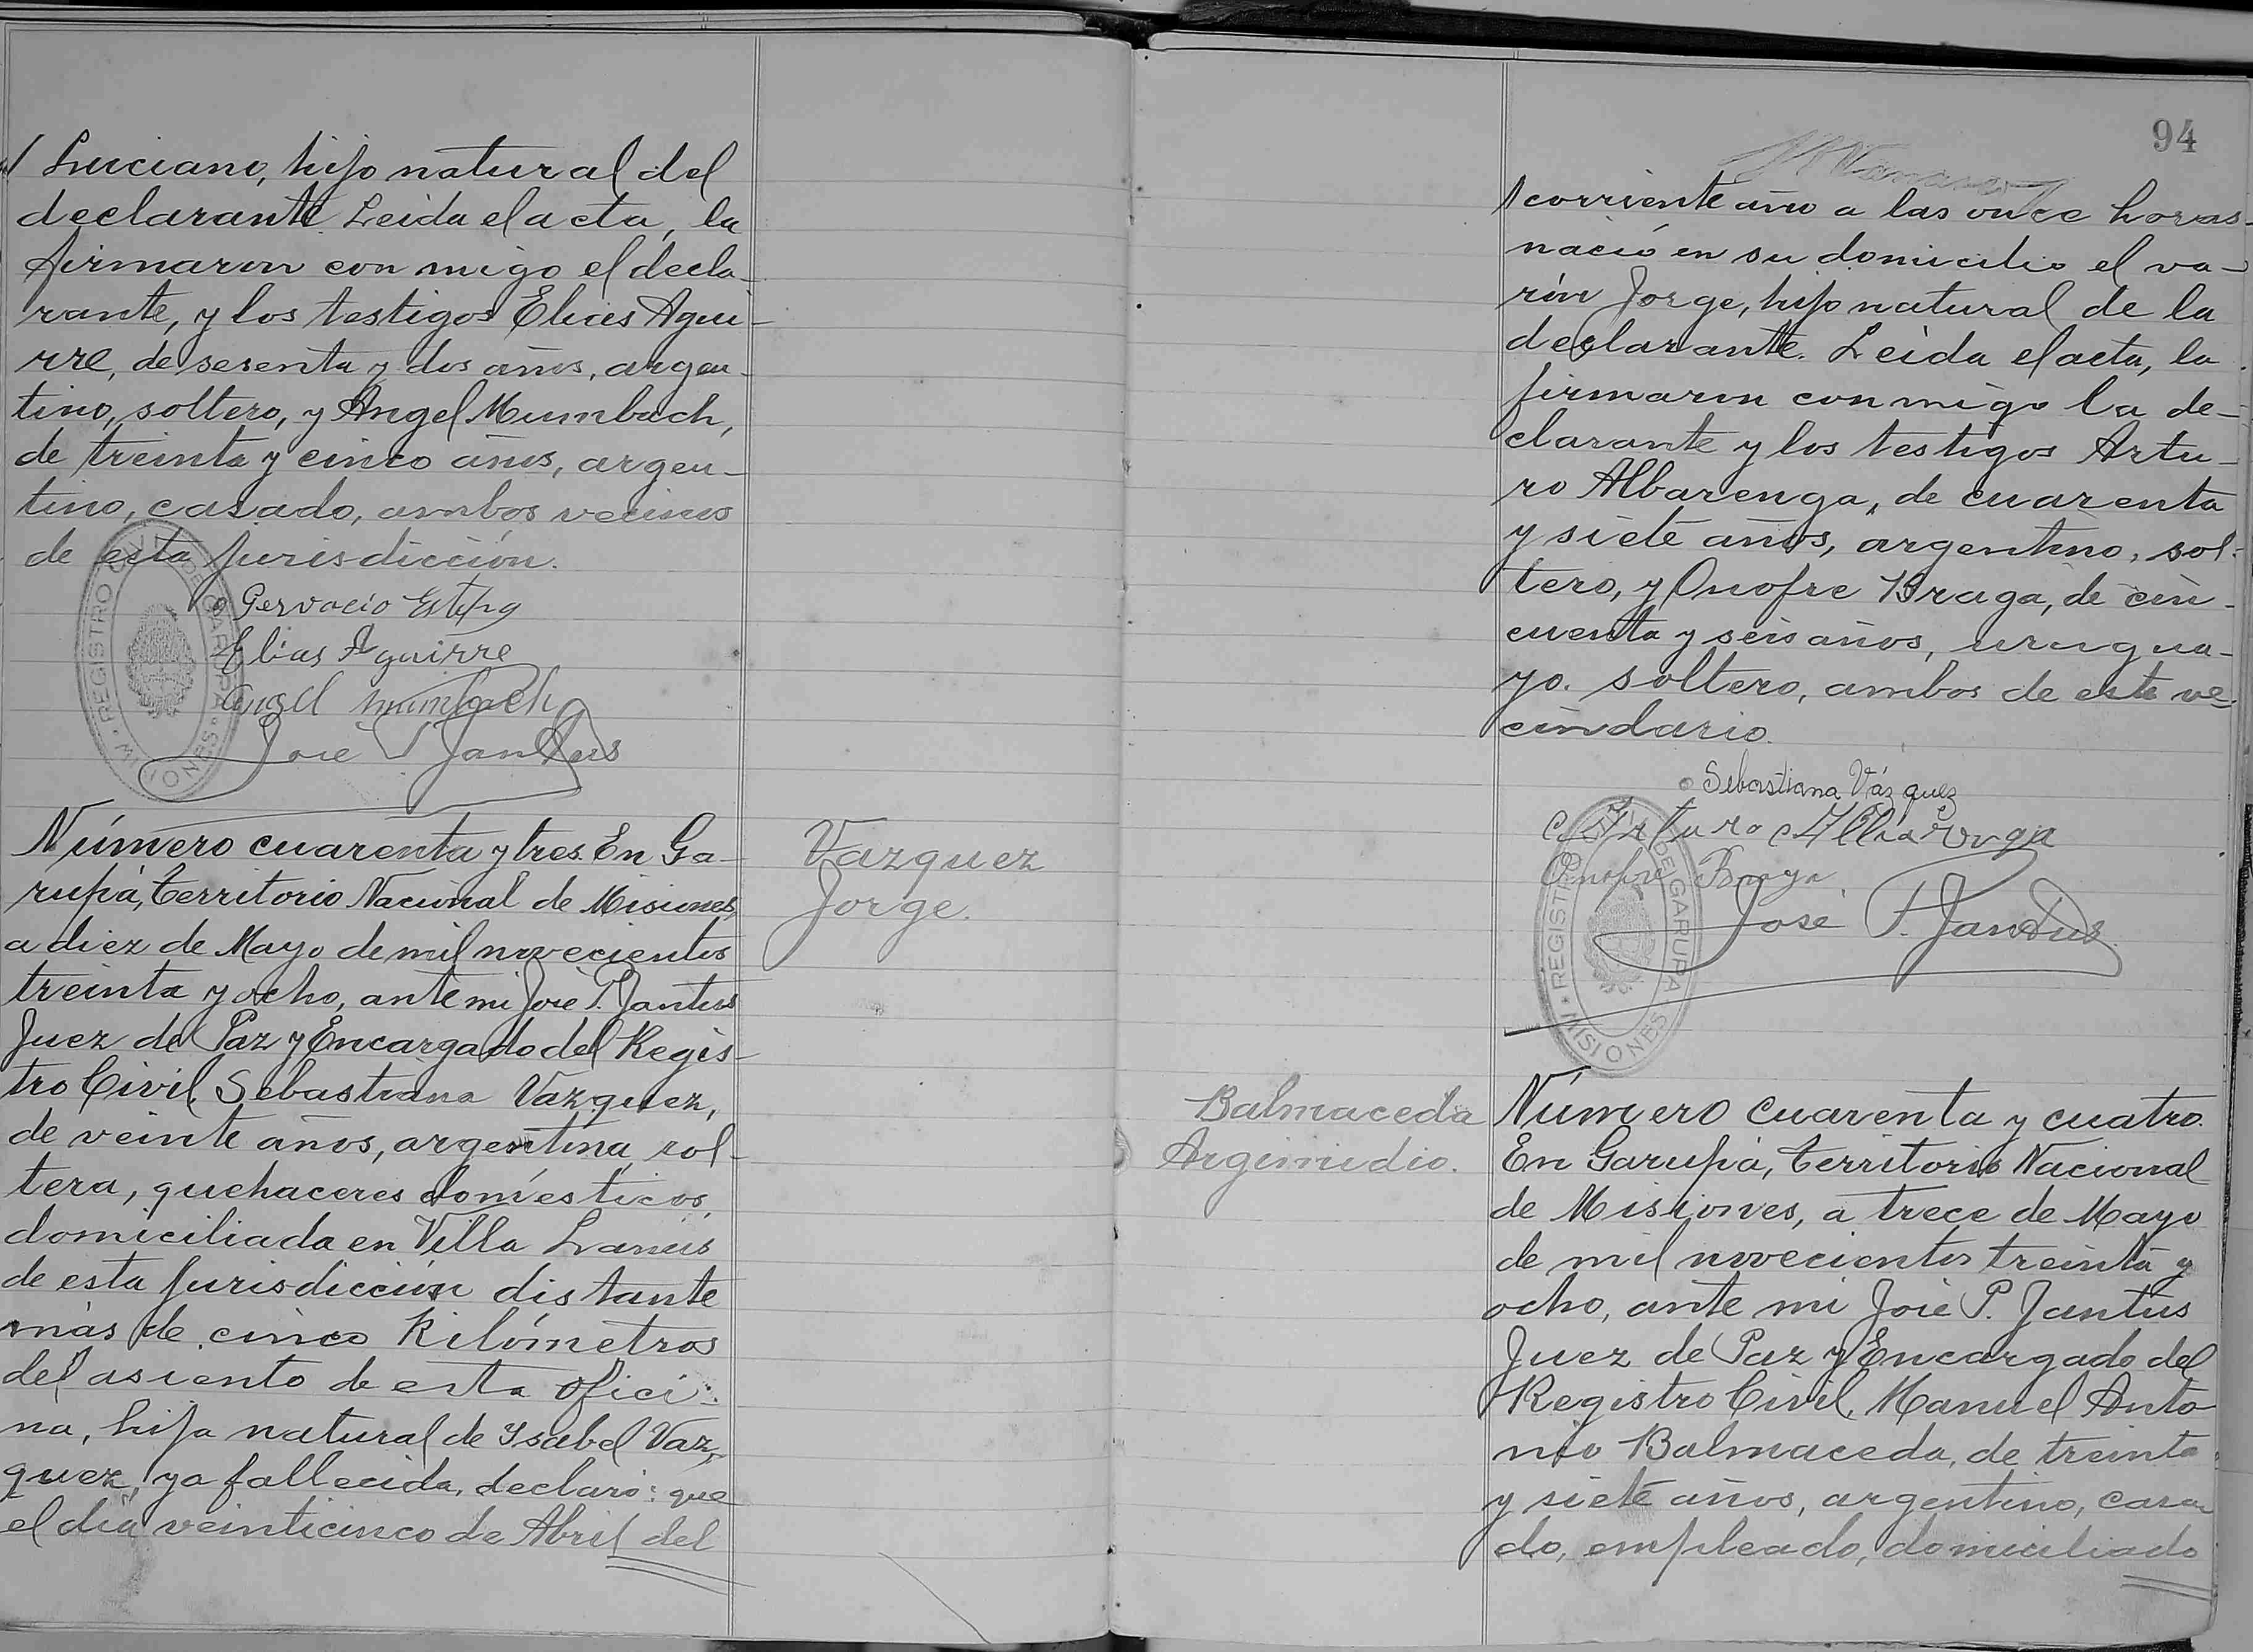 / Luciano, hijo natural del
declarante. Leida el acta, la
firmaron con migo el decla-
rante, y los testigos Elias Agui-
rre, de sesenta y dos años, argen-
tino, soltero, y Angel Mumbach,
de treinta y cinco años, argen-
tino, casado, ambos vecinos
de esta jurisdicción.
Gervacio
Elias Aguirre
Angel Mumbach
José P. Jantus
REGISTRO CIVIL DE GARUPA
MISIONES
Número cuarenta y tres. En Ga-
rupá, territorio Nacional de Misiones,
a diez de Mayo de mil novecientos
treinta y ocho, ante mi José P. Jantus
Juez de Paz y Encargado del Regis-
tro Civil, Sebastiana Vazquez,
de veinte años, argentina, sol-
tera, quehaceres domésticos,
domiciliada en Villa Lanús
de esta jurisdicción distante
más de cinco Kilómetros
del asiento de esta ofici-
na, hija natural de Ysabel Vaz-
quez, ya fallecida, declaró: que
el día veinticinco de Abril del
Vazquez
Jorge.
94
/ corriente año a las once horas
nació en su domicilio el va-
rón Jorge, hijo natural de la
declarante. Leida el acta, la
firmaron conmigo la de-
clarante y los testigos Artu-
ro Albarenga, de cuarenta
y siete años, argentino, sol-
tero, y Onofre Braga, de cin-
cuenta y seis años, urugua-
yo. soltero, ambos de este ve-
cindario.
Sebastiana Vázquez
Arturo Albarenga
Onofre Braga
José P. Jantus
REGISTRO CIVIL DE GARUPA
MISIONES
Balmaceda
Argimidio.
Número cuarenta y cuatro.
En Garupá, territorio Nacional
de Misiones, a trece de Mayo
de mil novecientos treinta y
ocho, ante mi José P. Jantus
Juez de Paz y Encargado del
Registro Civil, Manuel Anto
nio Balmaceda, de treinta
y siete años, argentino, casa
do, empleado, domiciliado